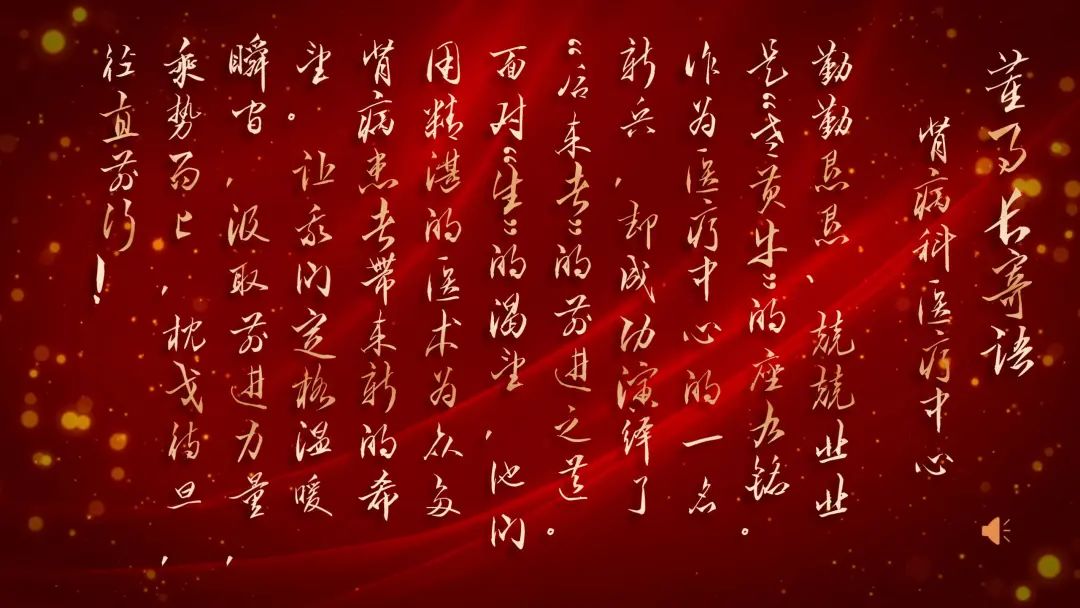 董事长寄语
肾病科医疗中心
勤勤恳恳、兢兢业业
是“老黄牛”的座右铭。
作为医疗中心的一名
新兵,却成功演绎了
“后来者”的前进之道。
面对“生”的渴望,他们
用精湛的医术为众多
肾病患者带来新的希
望。让我们定格温暖
瞬间,汲取前进力量,
乘势而上,枕戈待旦,
径直前行!